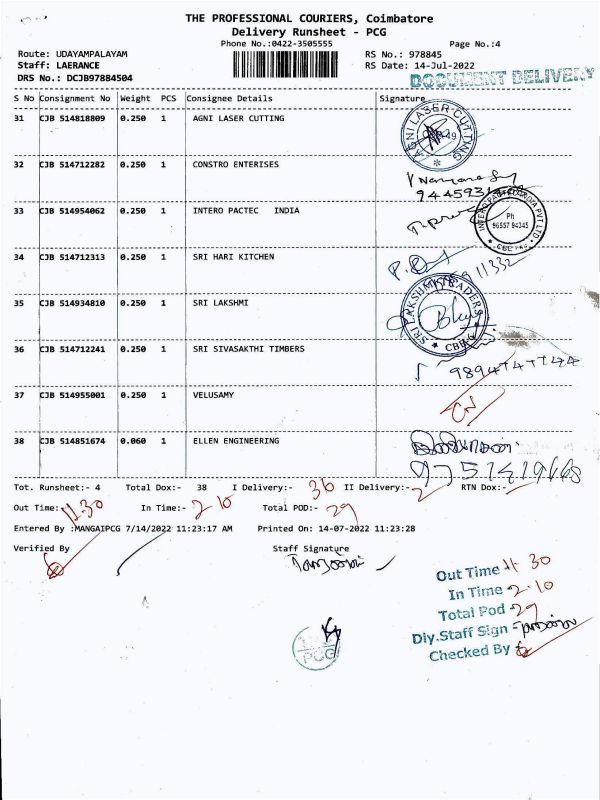 THE PROFESSIONAL COURIERS, Coimbatore
Delivery Runsheet - PCG
Phone No.:0422-3505555
Page No.:4
Route: UDAYAMPALAYAM
RS No.: 978845
Staff: LAERANCE
RS Date: 14-Jul-2022
DRS No.: DCJB97884504
DOCUMENT DELIVERY
S No Consignment No Weight PCS Consignee Details Signature
31 CJB 514818809 0.250 1 AGNI LASER CUTTING
AGNI LASER CUTTING
32 CJB 514712282 0.250 1 CONSTRO ENTERISES
33 CJB 514954062 0.250 1 INTERO PACTEC INDIA
Ph
96557 94345
34 CJB 514712313 0.250 1 SRI HARI KITCHEN
35 CJB 514934810 0.250 1 SRI LAKSHMI
SRI LAKSHMI TRADERS
36 CJB 514712241 0.250 1 SRI SIVASAKTHI TIMBERS
37 CJB 514955001 0.250 1 VELUSAMY
38 CJB 514851674 0.060 1 ELLEN ENGINEERING
Tot. Runsheet:- 4 Total Dox:- 38 I Delivery:- 36 II Delivery:- 2 RTN Dox:-
Out Time:- 11.30 In Time:- 2-10 Total POD:- 29
Entered By :MANGAIPCG 7/14/2022 11:23:17 AM Printed On: 14-07-2022 11:23:28
Verified By Staff Signature
Out Time 11 30
In Time 2.10
Total Pod 29
Dly.Staff Sign
Checked By
PCG